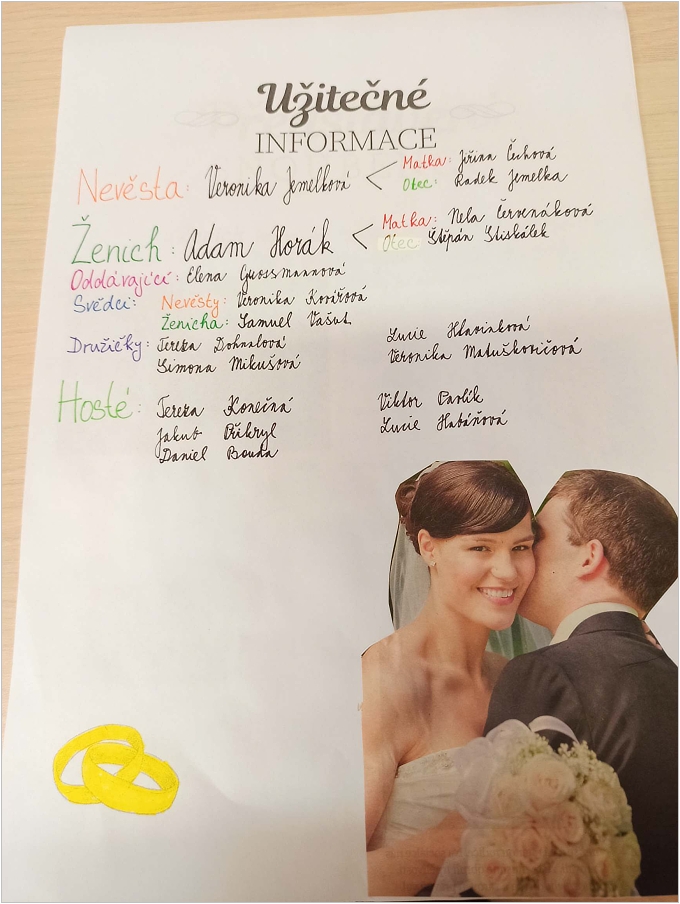 Užitečné
INFORMACE
Nevěsta: Veronika Jemelková < Matka: Jiřina Čechová
Otec: Radek Jemelka
Ženich: Adam Horák < Matka: Nela Červenáková
Otec: Štěpán Stiskálek
Oddávající: Elena Grossmannová
Svědci: Nevěsty: Veronika Kovářová
Ženicha: Samuel Vašut
Družičky: Tereza Dohnalová Lucie Hlavinková
Simona Mikušová Veronika Matuškovičová
Hosté: Tereza Konečná Viktor Pavlík
Jakub Přikryl Lucie Habáňová
Daniel Bouda